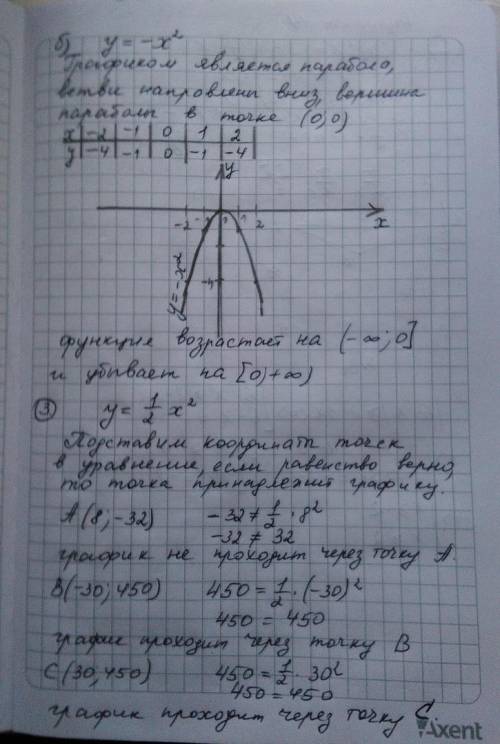 б) y = -x²
Графиком является парабола,
ветви направлены вниз, вершина
параболы в точке (0;0)
x | -2 | -1 | 0 | 1 | 2
y | -4 | -1 | 0 | -1 | -4
y
-2 -1 1 2 x
-4
y = -x²
функция возрастает на (-∞; 0]
и убывает на [0; +∞)
③ y = 1/2 x²
Подставим координаты точек
в уравнение, если равенство верно,
то точка принадлежит графику.
A (8; -32) -32 ≠ 1/2 · 8²
-32 ≠ 32
график не проходит через точку A.
B(-30; 450) 450 = 1/2 · (-30)²
450 = 450
график проходит через точку B
C (30, 450) 450 = 1/2 · 30²
450 = 450
график проходит через точку C
Axent